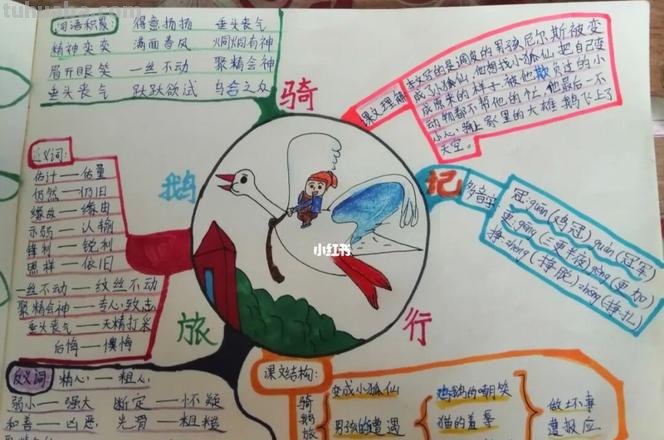 tuhuabo.com
词语积累:
得意扬扬 垂头丧气
精神奕奕 满面春风 炯炯有神
眉开眼笑 一丝不动 聚精会神
垂头丧气 跃跃欲试 乌合之众
骑
鹅
旅
行
记
课文理解
本文写的是调皮的男孩尼尔斯被变
成了小狐仙,他想找小狐仙把自己变
成原来的样子,被他欺负过的小
动物都不帮他的忙,他最后一不
小心,骑上家里的大雄鹅飞上了
天空。
近义词:
估计——估量
仍然——仍旧
缘故——缘由
示弱——认输
锋利——锐利
照样——依旧
一丝不动——纹丝不动
聚精会神——专心致志
垂头丧气——无精打采
后悔——懊悔
多音字:
冠:guān(鸡冠)guàn(冠军)
更:gēng(三更半夜)gèng(更加)
挣:zhèng(挣脱)zhēng(挣扎)
小红书
反义词:
粗心——粗人
弱小——强大 断定——怀疑
和善——凶恶 光滑——粗糙
课文结构:
骑
鹅
旅
变成小狐仙
男孩的遭遇
鸡鹅的嘲笑
猫的羞辱
做坏事
遭报应